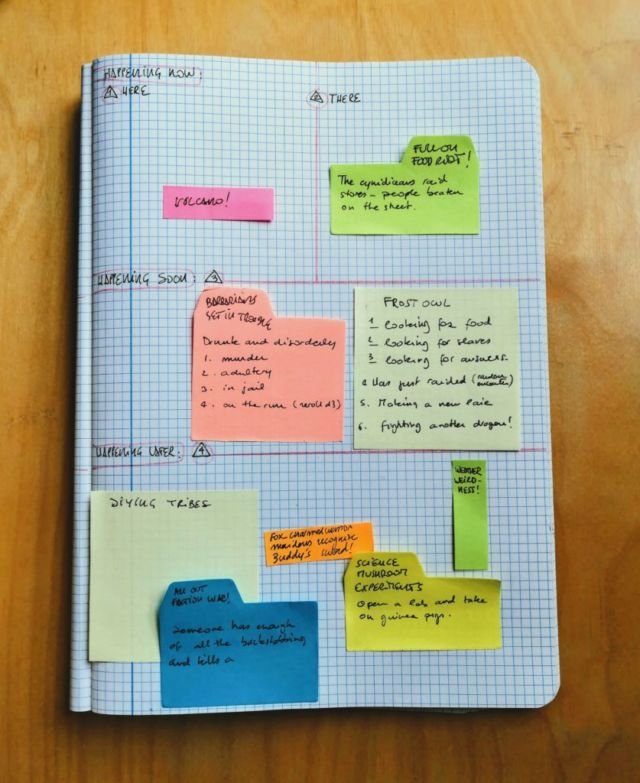 HAPPENING NOW:
1 HERE
2 THERE
FULL ON
FOOD RIOT!
The cynidiceans raid
stores - people beaten
on the street.
VOLCANO!
HAPPENING SOON: 3
BARBARIANS
GET IN TROUBLE
Drunk and disorderly
1. murder
2. adultery
3. in jail
4. on the run (reroll d3)
FROST OWL
1 looking for food
2 looking for slaves
3 looking for answers.
4 Has just raided (random
encounter)
5. Making a new lair
6. fighting another dragon!
HAPPENING LATER: 4
DIVING TRIBES
ALL OUT
FACTION WAR!
Someone has enough
of all the backstabbing
and kills a
FOX
recognise
Buddy's sword!
SCIENCE
MUSHROOM
EXPERIMENTS
Open a lab and take
on guinea pigs.
WEATHER
WEIRD-
NESS!